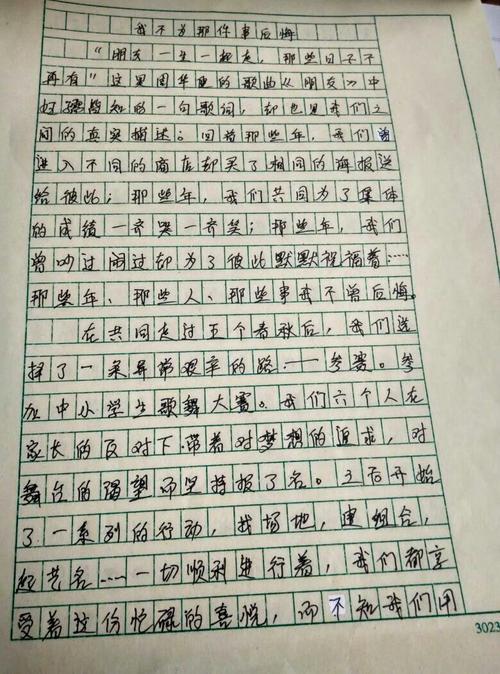 我不为那件事后悔
"朋友一生一起走,那些日子不
再有"这是周华健的歌曲《朋友》中
妇孺皆知的一句歌词,却也是我们之
间的真实描述。回首那些年,我们曾
进入不同的商店却买了相同的海报送
给彼此;那些年,我们共同为了集体
的成绩一齐哭一齐笑;那些年,我们
曾吵过闹过却为了彼此默默祝福着……
那些年、那些人、那些事我不曾后悔。
在共同走过五个春秋后,我们选
择了一条异常艰辛的路——参赛。参
加中小学生歌舞大赛。我们六个人在
家长的反对下,带着对梦想的追求,对
舞台的渴望而坚持报了名。之后开始
了一系列的行动,找场地,建组合,
起艺名……一切顺利进行着,我们都享
受着这份忙碌的喜悦,而不知我们用
3023